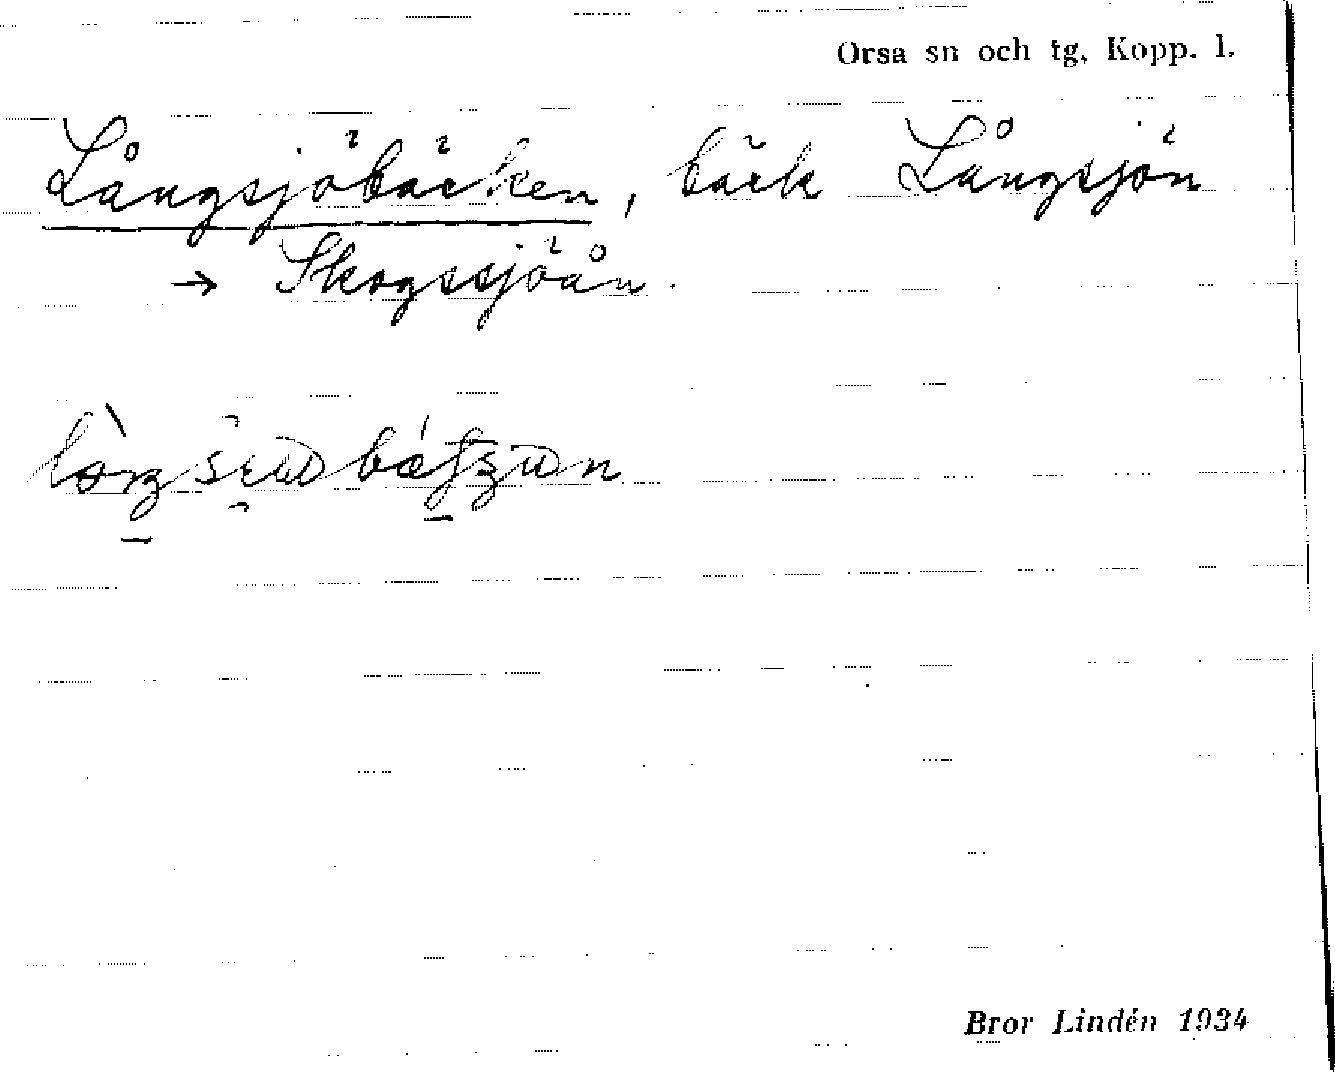 Orsa sn och tg, Kopp. l.
Långsjöbäcken, bäck Långsjön
→ Skogssjöån.
Bror Lindén 1934